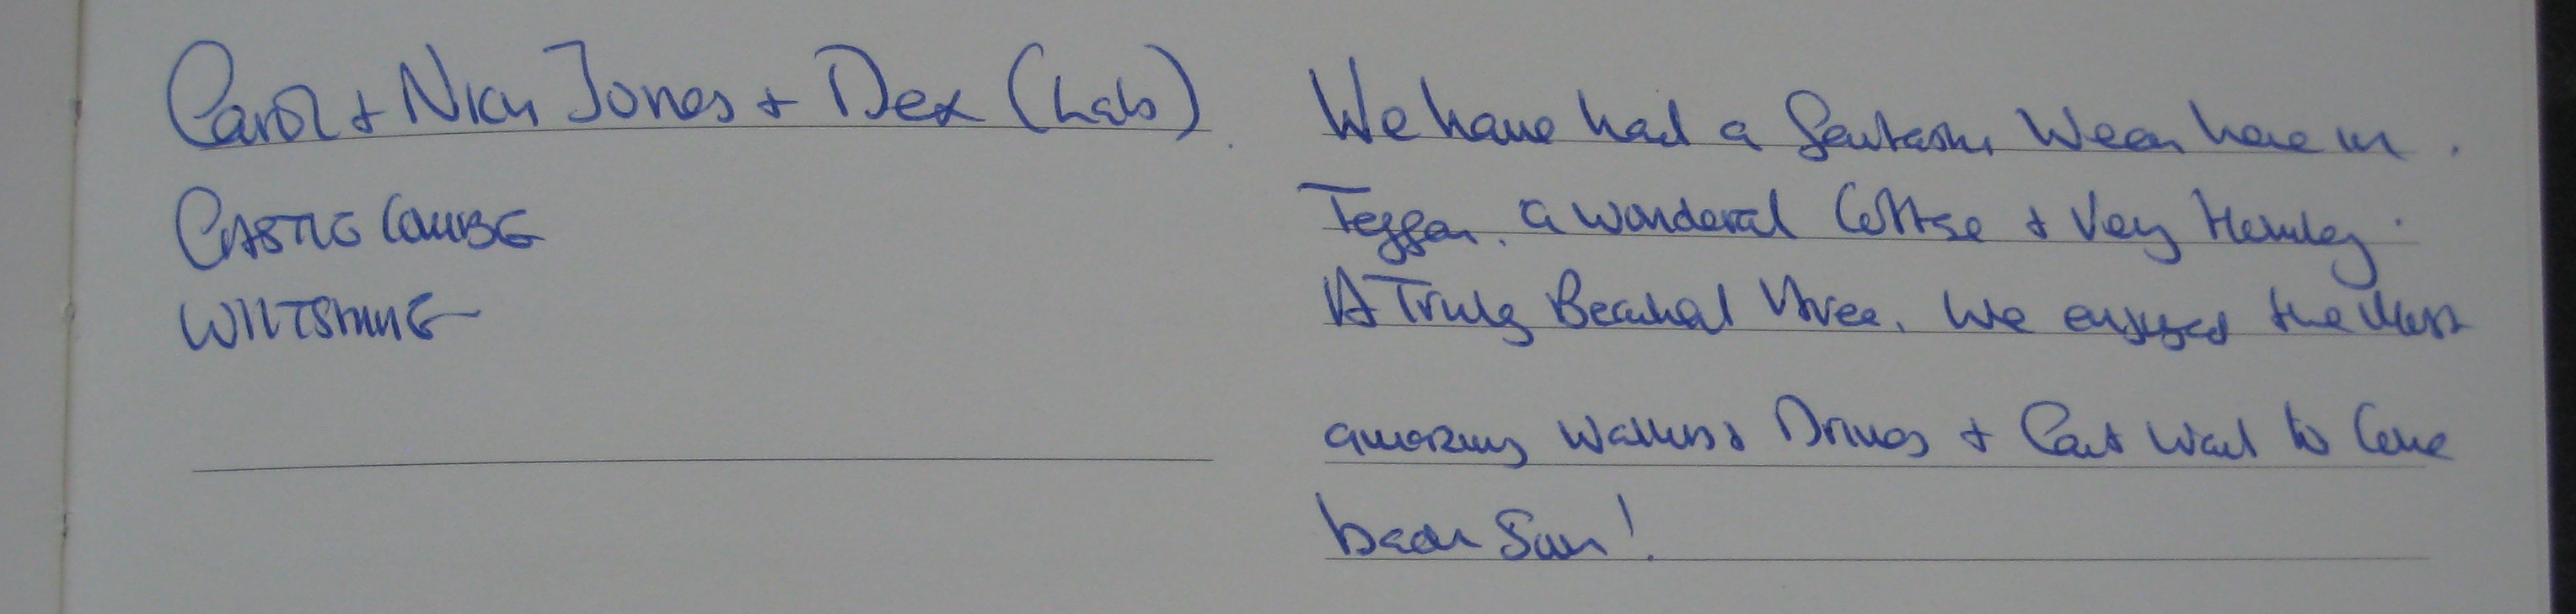 Carol + Nick Jones + Dex (Lab).
CASTLE COMBE
WILTSHIRE
We have had a fantastic Week here in
Teggan. a wonderful Cottage + Very Homley.
A Truly Beautiful Area. We enjoyed the Most
amazing Walks + Drives + Cant Wait to Come
back Soon!